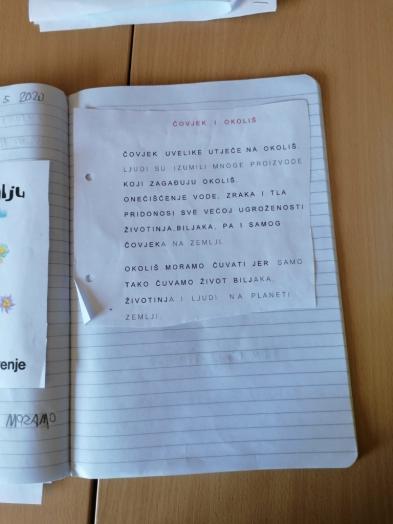 5 2020
ČOVJEK I OKOLIŠ
ČOVJEK UVELIKE UTJEČE NA OKOLIŠ.
LJUDI SU IZUMILI MNOGE PROIZVODE
KOJI ZAGAĐUJU OKOLIŠ.
ONEČIŠĆENJE VODE, ZRAKA I TLA
PRIDONOSI SVE VEĆOJ UGROŽENOSTI
ŽIVOTINJA,BILJAKA, PA I SAMOG
ČOVJEKA NA ZEMLJI.
OKOLIŠ MORAMO ČUVATI JER SAMO
TAKO ČUVAMO ŽIVOT BILJAKA,
ŽIVOTINJA I LJUDI NA PLANETI
ZEMLJI.
MORAMO